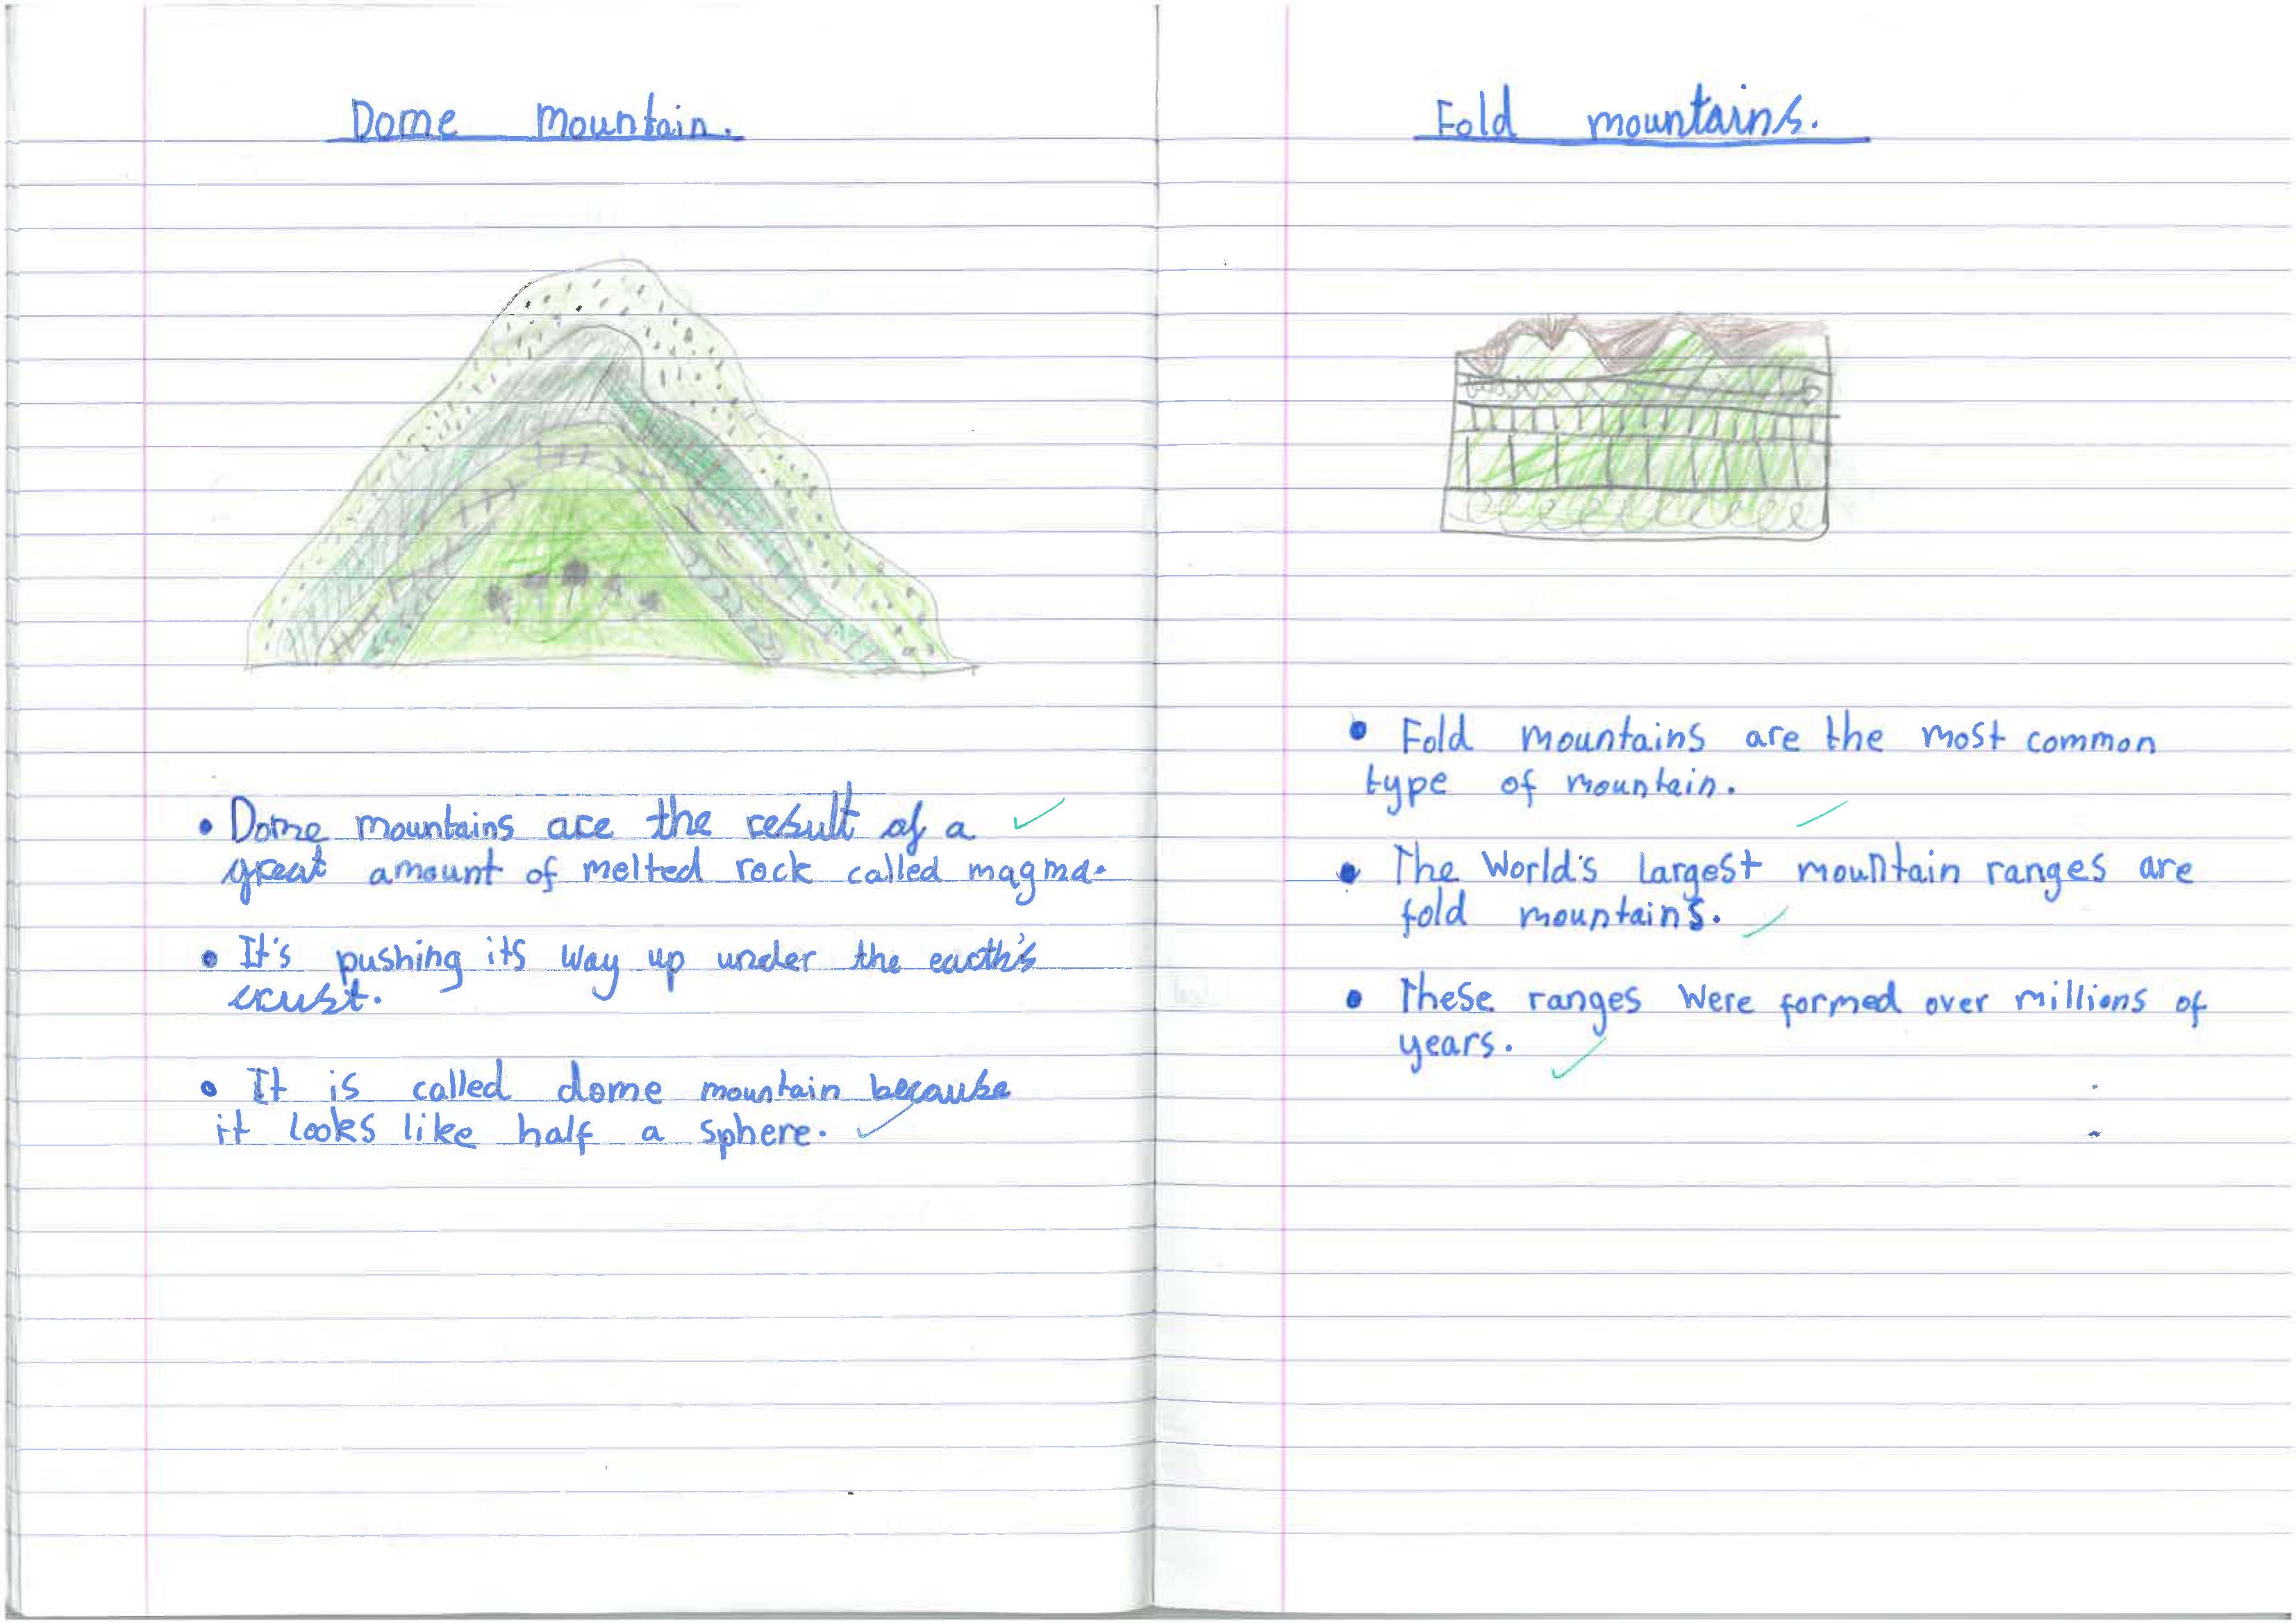 Dome mountain.
• Dome mountains are the result of a
great amount of melted rock called magma.
• It's pushing its way up under the earth's
crust.
• It is called dome mountain because
it looks like half a sphere.
Fold mountains.
• Fold mountains are the most common
type of mountain.
• The World's largest mountain ranges are
fold mountains.
• These ranges were formed over millions of
years.